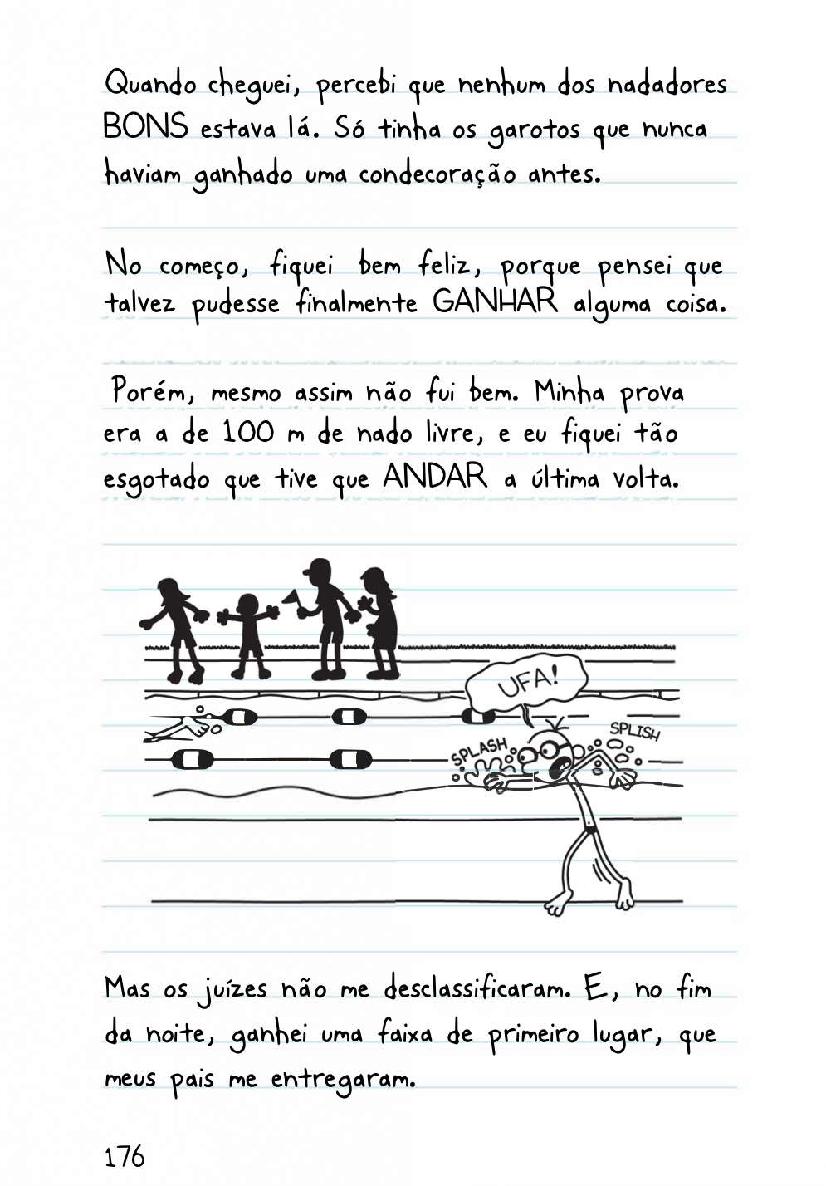 Quando cheguei, percebi que nenhum dos nadadores
BONS estava lá. Só tinha os garotos que nunca
haviam ganhado uma condecoração antes.
No começo, fiquei bem feliz, porque pensei que
talvez pudesse finalmente GANHAR alguma coisa.
Porém, mesmo assim não fui bem. Minha prova
era a de 100 m de nado livre, e eu fiquei tão
esgotado que tive que ANDAR a última volta.
UFA!
SPLASH
SPLISH
Mas os juízes não me desclassificaram. E, no fim
da noite, ganhei uma faixa de primeiro lugar, que
meus pais me entregaram.
176